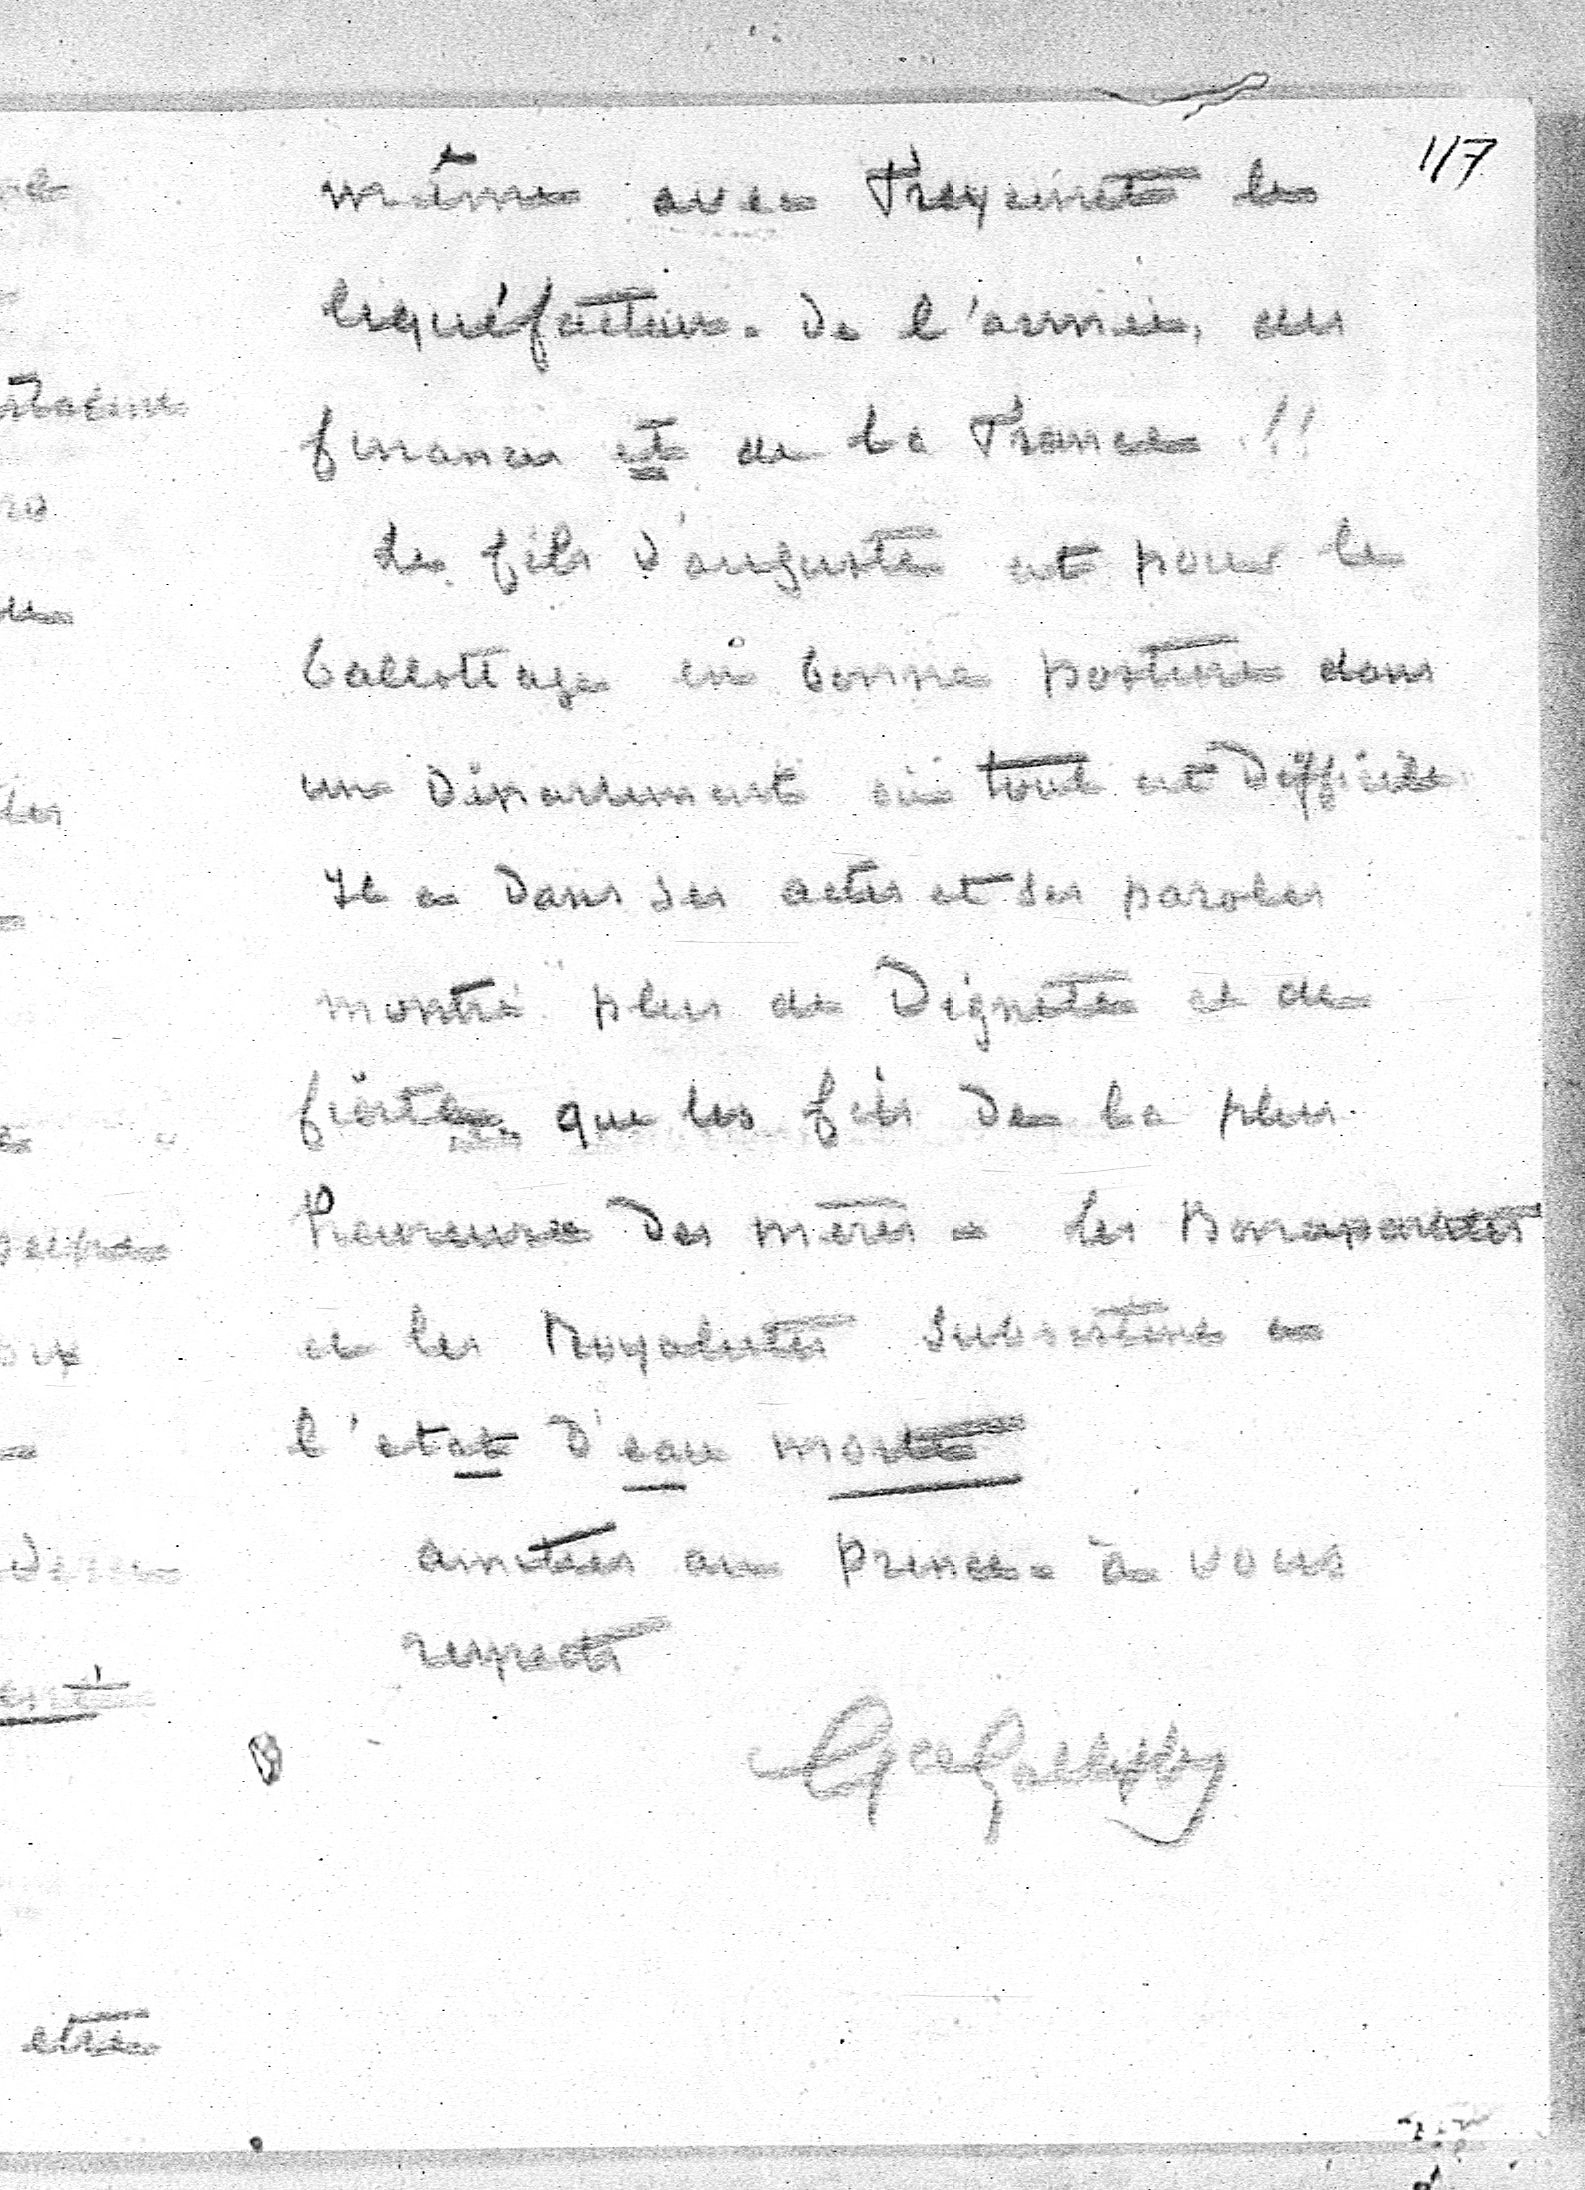 117
même avec Freycinet la
liquéfaction. de l'armée, des
finances et de la France !!
Le fils d'auguste est pour le
ballottage en bonne posture dans
un Département où tout est Difficile
Il a dans ses actes et ses paroles
montré plus de Dignité et de
fierté que les fils de la plus
heureuse des mères - les Bonapartistes
et les Royalistes subsistent à
l'etat d'eau morte
amitiés au Prince. à vous
respects